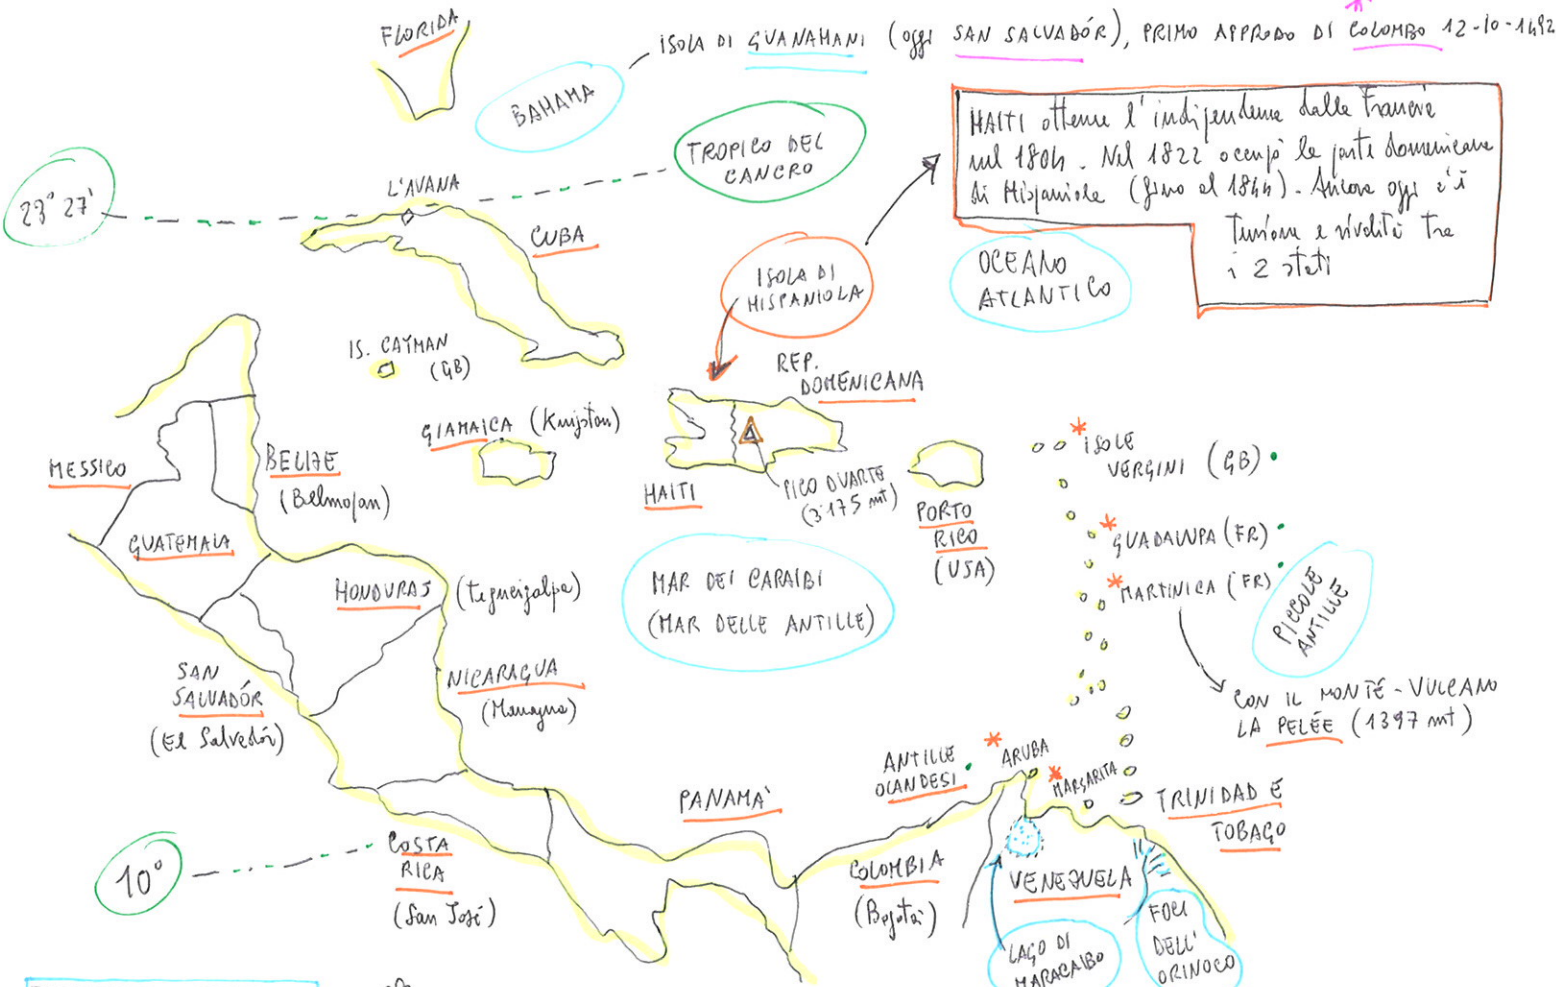 FLORIDA
ISOLA DI GUANAHANI (oggi SAN SALVADÓR), PRIMO APPRODO DI COLOMBO 12-10-1492
BAHAMA
HAITI ottenne l'indipendenza dalla Francia
nel 1804. Nel 1822 occupò la parte domenicana
di Hispaniola (fino al 1844). Ancora oggi c'è
tensione e rivalità tra
i 2 stati
TROPICO DEL
CANCRO
23° 27'
L'AVANA
CUBA
ISOLA DI
HISPANIOLA
OCEANO
ATLANTICO
IS. CAYMAN
(GB)
REP.
DOMENICANA
GIAMAICA (Kingston)
MESSICO
BELIZE
(Belmopan)
HAITI
PICO DUARTE
(3175 mt)
PORTO
RICO
(USA)
ISOLE
VERGINI (GB)
GUATEMALA
GUADALUPA (FR)
MARTINICA (FR)
PICCOLE
ANTILLE
HONDURAS (Tegucigalpa)
MAR DEI CARAIBI
(MAR DELLE ANTILLE)
SAN
SALVADÓR
(El Salvadór)
NICARAGUA
(Managua)
CON IL MONTE-VULCANO
LA PELÉE (1397 mt)
ANTILLE
OLANDESI
ARUBA
MARGARITA
PANAMA'
TRINIDAD E
TOBAGO
10°
COSTA
RICA
(San José)
COLOMBIA
(Bogotà)
VENEZUELA
LAGO DI
MARACAIBO
FOCI
DELL'
ORINOCO